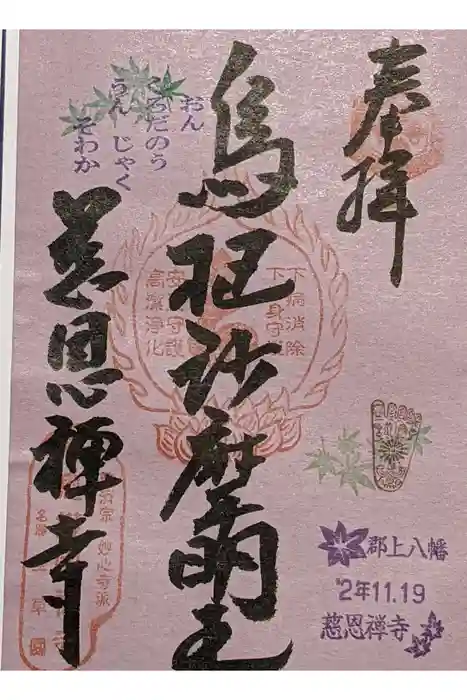 奉拝
烏枢沙摩明王
おん
くろだのう
うん じゃく
そわか
慈恩禅寺
下病消除
下身守護
安産守護
高潔浄化
妙心寺派
郡上八幡
'2年11.19
慈恩禅寺